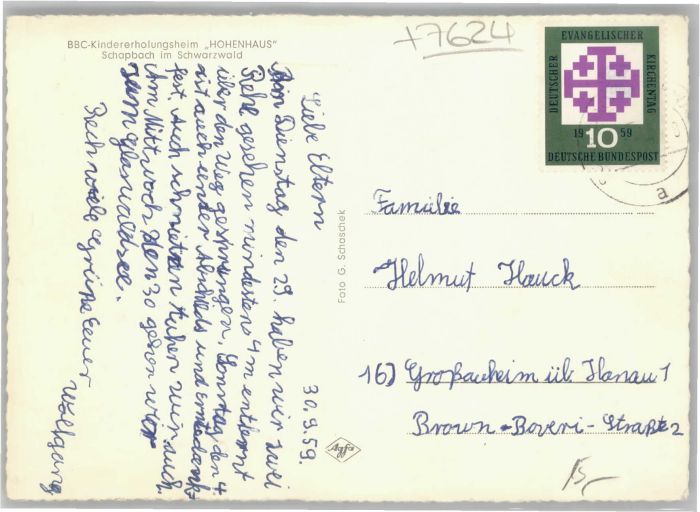 BBC-Kindererholungsheim „HOHENHAUS"
Schapbach im Schwarzwald
+7624
30.9.59.
Liebe Eltern
Am Dienstag den 29. haben wir zwei
Rehe gesehen mindestens 4 m entfernt
über den Weg gesprungen. Sonntag den 4.
ist auch under Abschieds und erntedank-
fest. Auch schmieten Kuhen wir auch
ihm Mittwoch den 30 gehen wir
zum glaswaldsee.
Rech viele Grüße Eeuer
Wolfgang
Foto G. Schaschek
Agfa
DEUTSCHER
EVANGELISCHER
KIRCHENTAG
1959
10
DEUTSCHE BUNDESPOST
a
Familie
Helmut Hauck
16) Großauheim üb. Hanau 1
Brown-Boveri-Straße 2